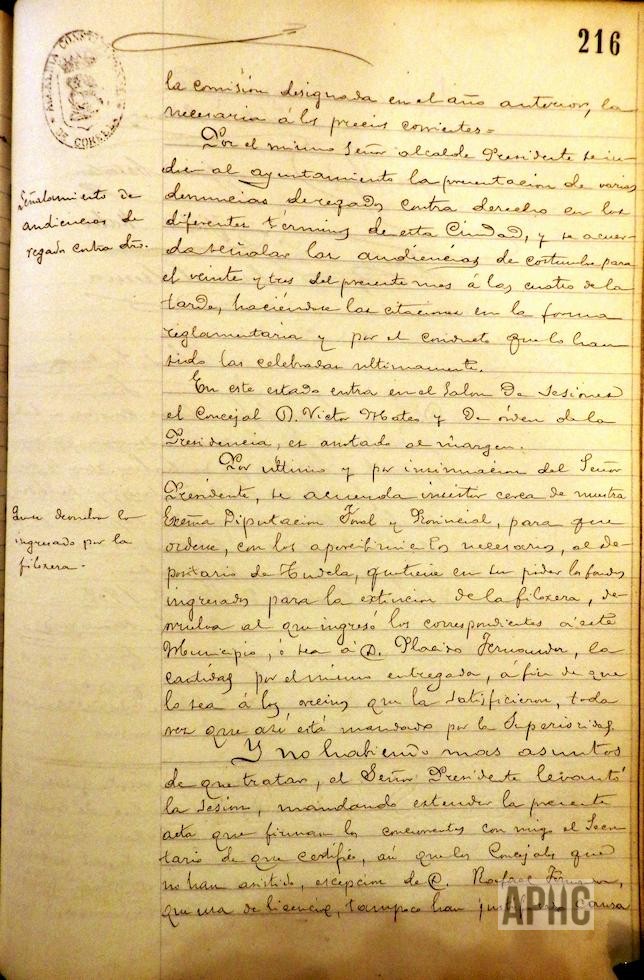 216
ALCALDIA CONSTITUCIONAL
DE CORELLA
la comisión designada en el año anterior, la
necesaria á los precios corrientes=
Por el mismo Señor alcalde Presidente se
al ayuntamiento la presentacion de varias
denuncias de regado contra derecho en los
diferentes términos de esta Ciudad, y se acuer-
da señalar las audiencias de costumbre para
el veinte y tres del presente mes á las cuatro de la
tarde, haciéndose las citaciones en la forma
reglamentaria y por el conducto que lo han
sido las celebradas ultimamente.
En este estado entra en el Salon De Sesiones
el Concejal D. Victor Mateo y De órden de la
Presidencia, es anotado al márgen.
Por último y por insinuacion del Señor
Presidente, se acuerda insistir cerca de nuestra
Excma Diputacion Foral y Provincial, para que
ordene, con los apercibimientos necesarios, al de-
positario de Tudela, que tiene en su poder los fondos
ingresados para la extincion de la filoxera, de-
vuelva al que ingresó los correspondientes á este
Municipio, ó sea á D. Placido Fernandez, la
cantidad por el mismo entregada, á fin de que
lo sea á los vecinos que la satisficieron, toda
vez que asi está mandado por la Superioridad.
Y no habiendo mas asuntos
de que tratar, el Señor Presidente levantó
la Sesion, mandando extender la presente
acta que firman los concurrentes con migo el Secre-
tario de que certifico, así que los Concejales que
no han asistido, escepcion de D. Rafael
que usa de licencia, tampoco han justificado causa
Señalamiento de
audiencias de
regado contra dro.
Que se devuelva lo
ingresado por la
filoxera.
APHC